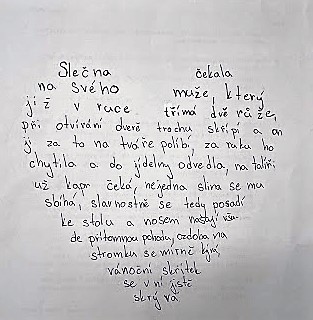 Slečna čekala
na svého muže, který
jí ž v ruce třímá dvě růže,
při otvírání dveře trochu skřípí a on
jí, za to na tváře políbí, za ruku ho
chytila a do jídelny odvedla, na talíři
už kapr čeká, nejedna slina se mu
sbíhá, slavnostně se tedy posadí
ke stolu a nosem nasají vše
de přítomnou pohodu, ozdoba na
stromku se mírně kývá,
vánoční skřítek
se v ní jistě
skrývá